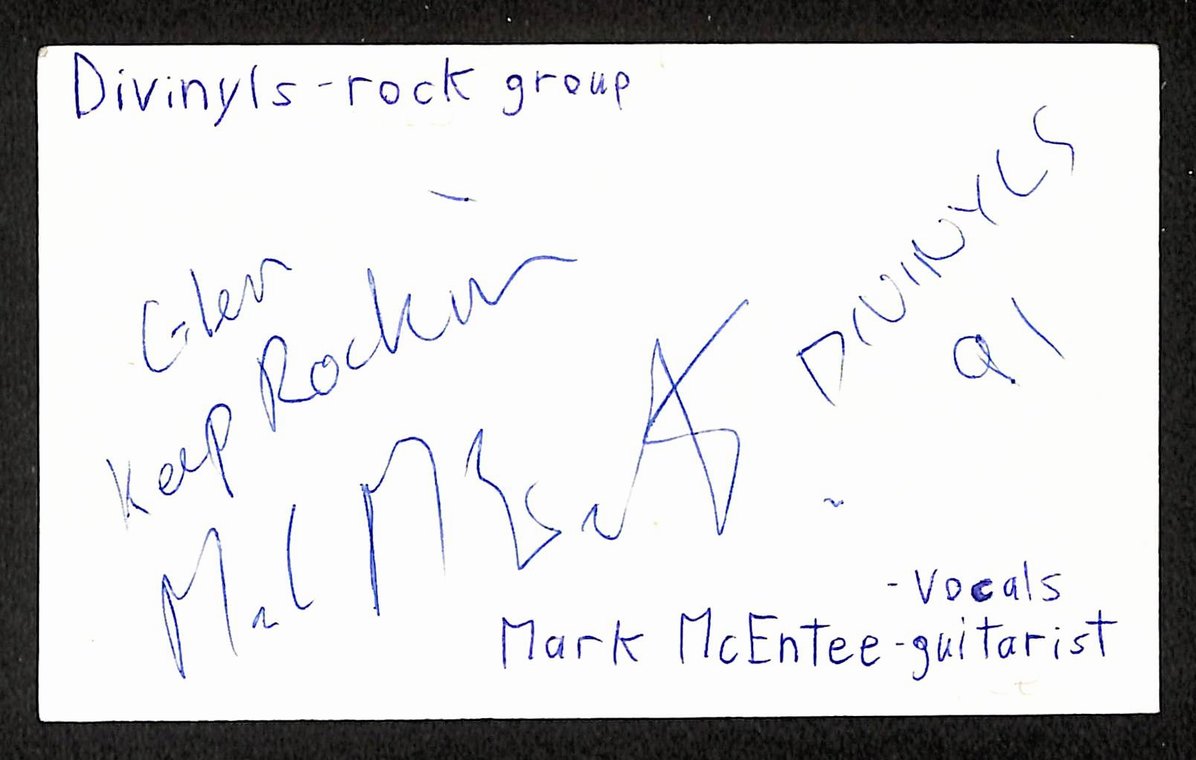 Divinyls - rock group
Glen
Keep Rockin
Mark McEntee
DIVINYLS
91
- vocals
Mark McEntee - guitarist